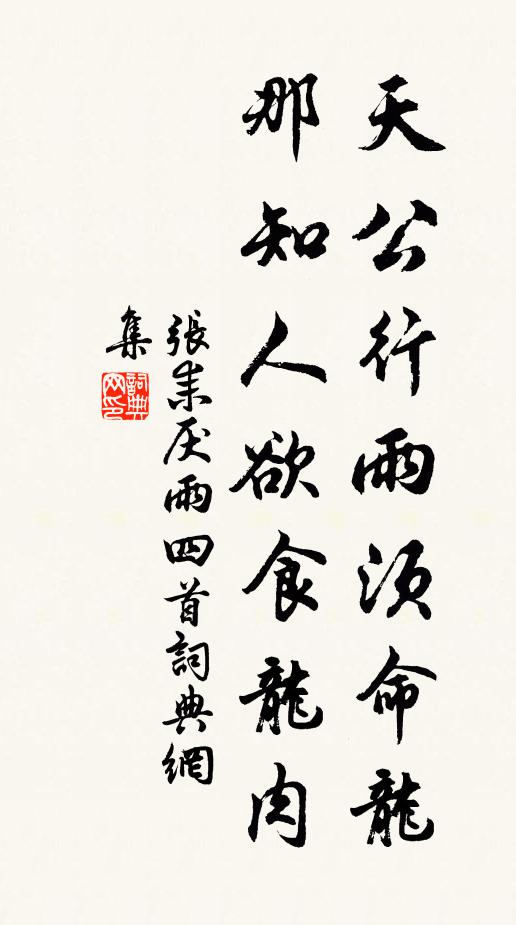 天公行雨須命龍
那知人欲食龍肉
張耒厌雨四首詞典網
集
詞典网印